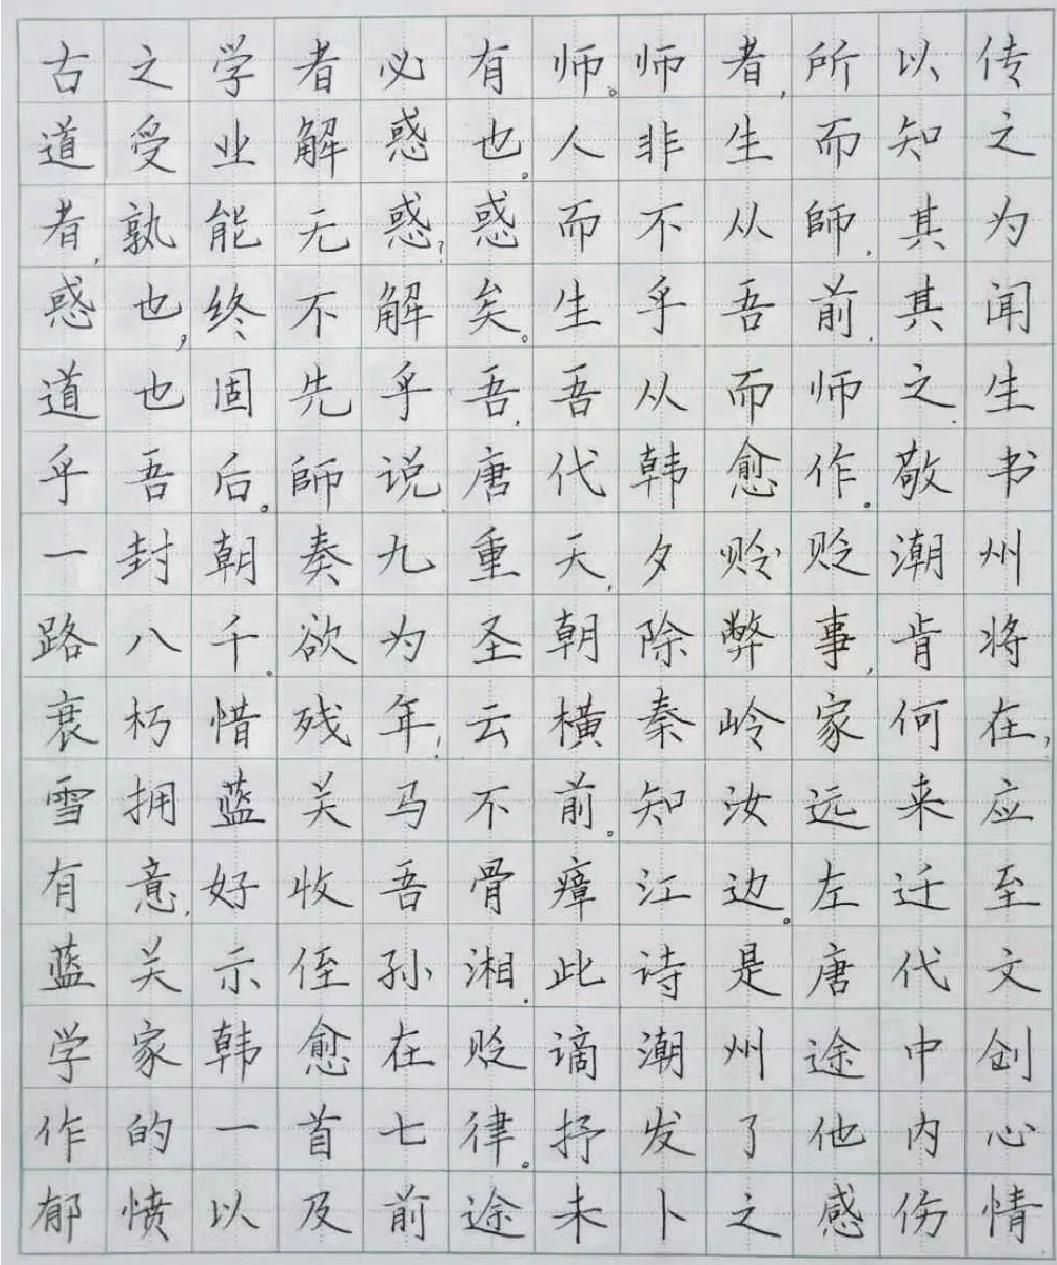 古之学者必有师。师者,所以传
道受业解惑也。人非生而知之
者,孰能无惑?惑而不从師,其为
惑也,终不解矣。生乎吾前,其闻
道也固先乎吾,吾从而师之.生
乎吾后。師说唐代韩愈作。敬书
一封朝奏九重天,夕贁贬潮州
路八千。欲为圣朝除弊事,肯将
衰朽惜残年,云横秦岭家何在,
雪拥蓝关马不前。知汝远来应
有意,好收吾骨瘴江边。左迁至
蓝关示侄孙湘.此诗是唐代文
学家韩愈在贬谪潮州途中创
作的一首七律。抒发了他内心
郁愤以及前途未卜之感伤情